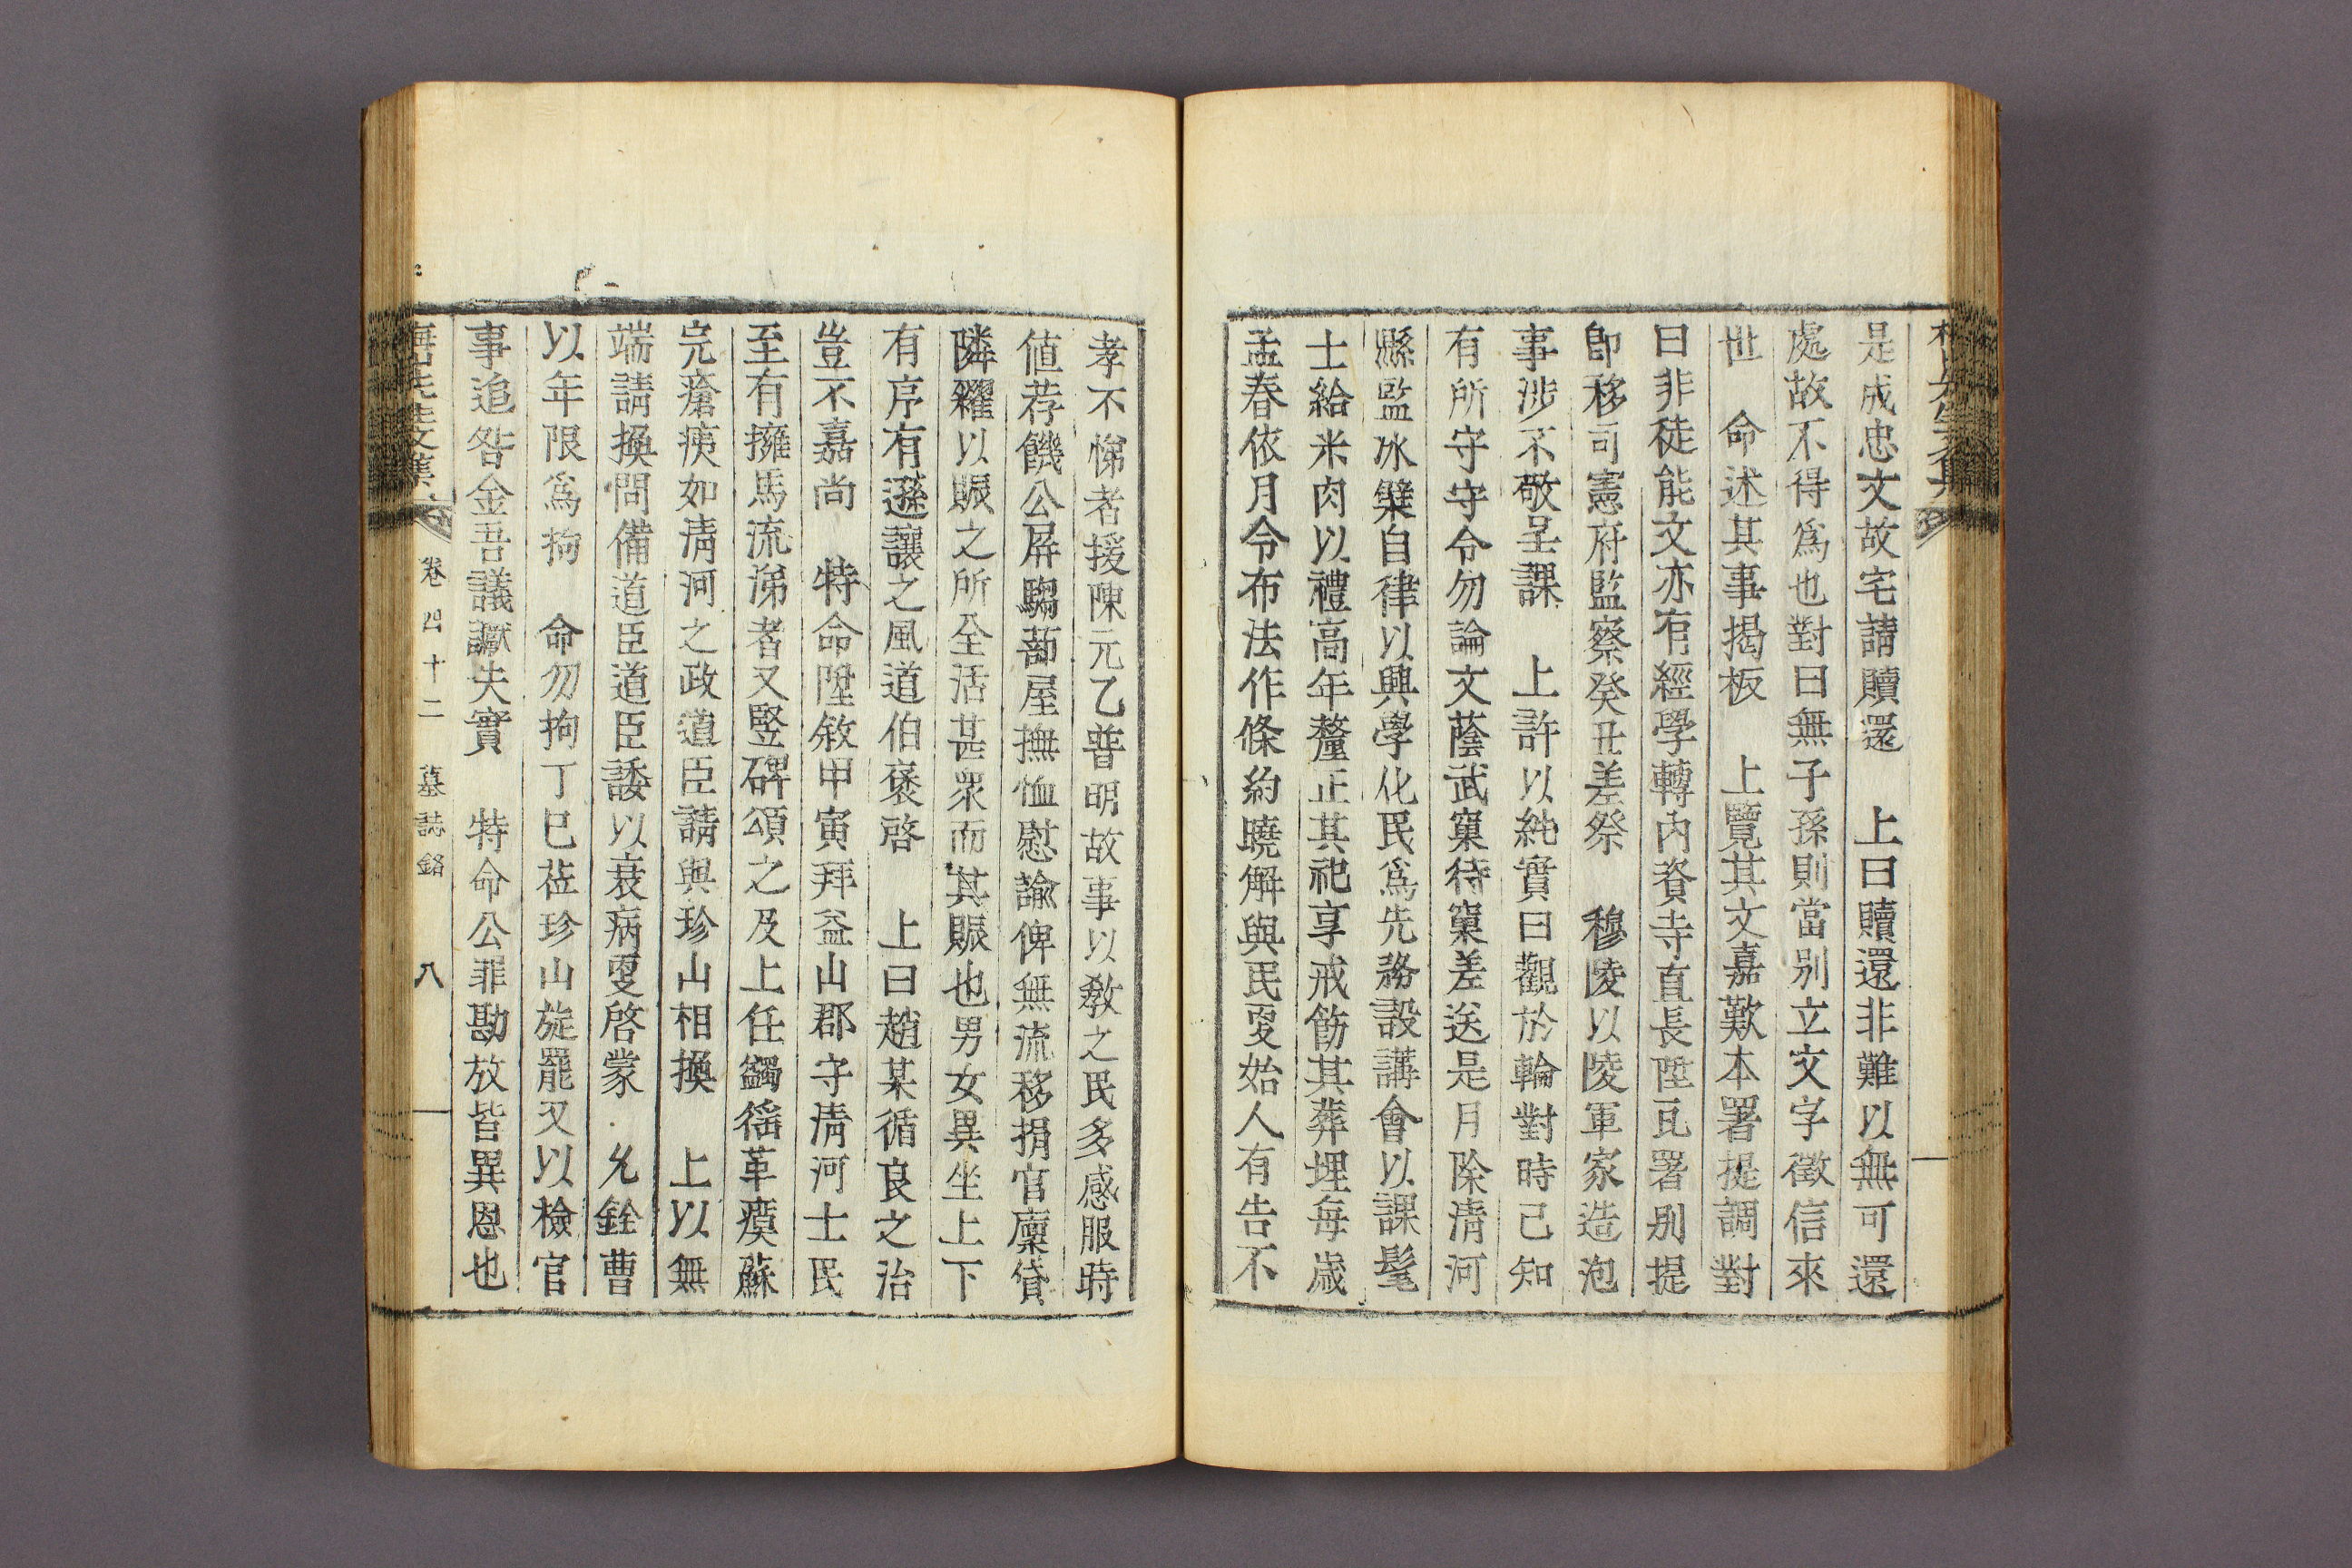 是成忠文故宅請贖還　上曰贖還非難以無可還
處故不得爲也對曰無子孫則當别立文字徵信來
世　命述其事揭板　上覽其文嘉歎本署提調對
曰非徒能文亦有經學轉內資寺直長陞瓦署别提
卽移司憲府監察癸丑差祭　穆陵以陵軍家造泡
事涉不敬呈課　上許以純實曰觀於輪對時已知
有所守守令勿論文蔭武窠待窠差送是月除淸河
縣監氷糵自律以興學化民爲先務設講會以課髦
士給米肉以禮高年釐正其祀享戒飭其葬埋每歲
孟春依月令布法作條約曉解與民更始人有告不
孝不悌者援陳元乙普明故事以敎之民多感服時
値荐饑公屛騶蔀屋撫恤慰諭俾無流移捐官廩貸
隣糴以賑之所全活甚衆而其賑也男女異坐上下
有序有遜讓之風道伯褒啓　上曰趙某循良之治
豈不嘉尙　特命陞敘甲寅拜益山郡守淸河士民
至有擁馬流涕者又竪碑頌之及上任蠲徭革瘼蘇
完瘡痍如淸河之政道臣請與珍山相換　上以無
端請換問備道臣道臣諉以衰病更啓蒙　允銓曹
以年限爲拘　命勿拘丁巳莅珍山旋罷又以檢官
事追咎金吾議讞失實　特命公罪勘放皆異恩也
梅山先生文集　卷四十二　墓誌銘　八